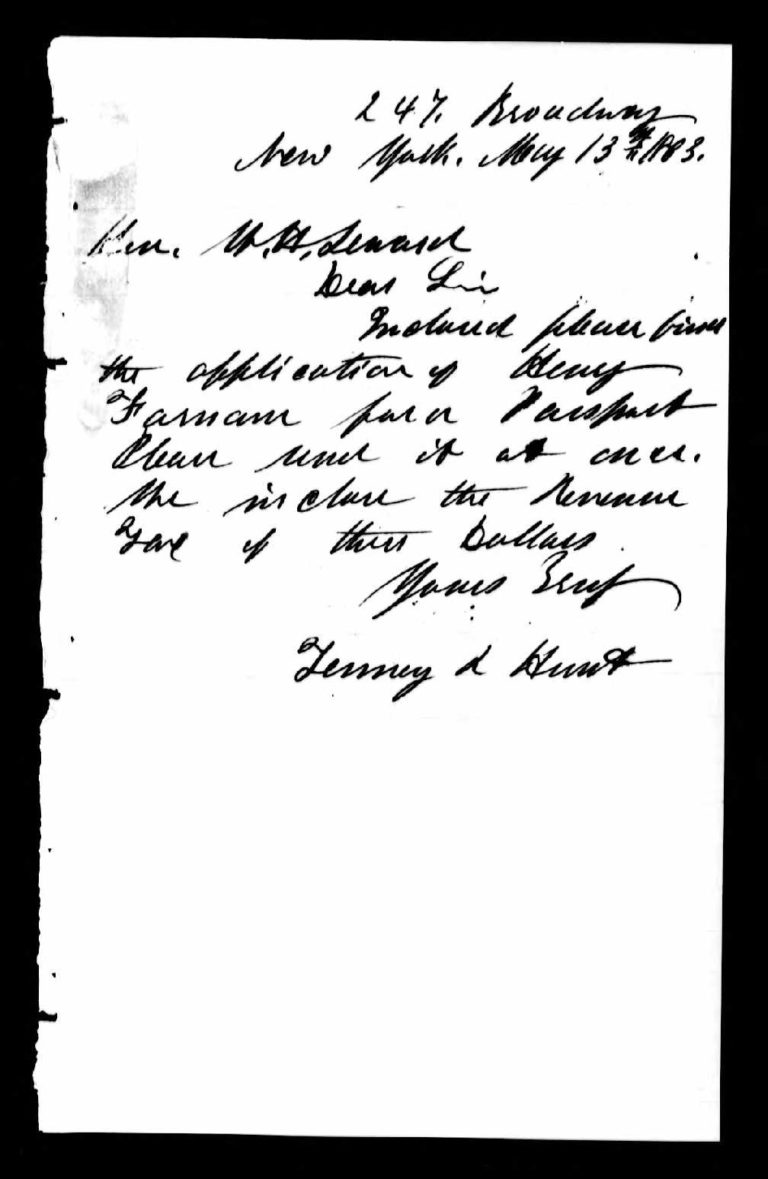 247. Broadway
New York. May 13th 1863.
Hon. W. H. Seward
Dear Sir
Inclosed please find
the application of Henry
Farnam for a Passport
Please send it at once.
We inclose the Revenue
Tax of three Dollars
Yours Truly
Tenney & Hunt